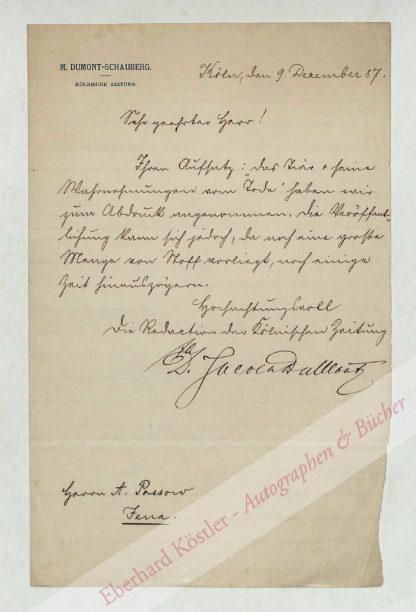 M. DUMONT-SCHAUBERG.
KÖLNISCHE ZEITUNG.
Köln, den 9. December 87.
Sehr geehrter Herr!
Ihren Aufsatz: „das Tier u. seine
Wahrnehmungen vom Tode“ haben wir
zum Abdruck angenommen. Die Veröffent-
lichung kann sich jedoch, da noch eine große
Menge von Stoff vorliegt, noch einige
Zeit hinauszögern.
Hochachtungsvoll
Die Redaction der Kölnischen Zeitung
Herrn A. Passow
Jena.
Eberhard Köstler - Autographen & Bücher